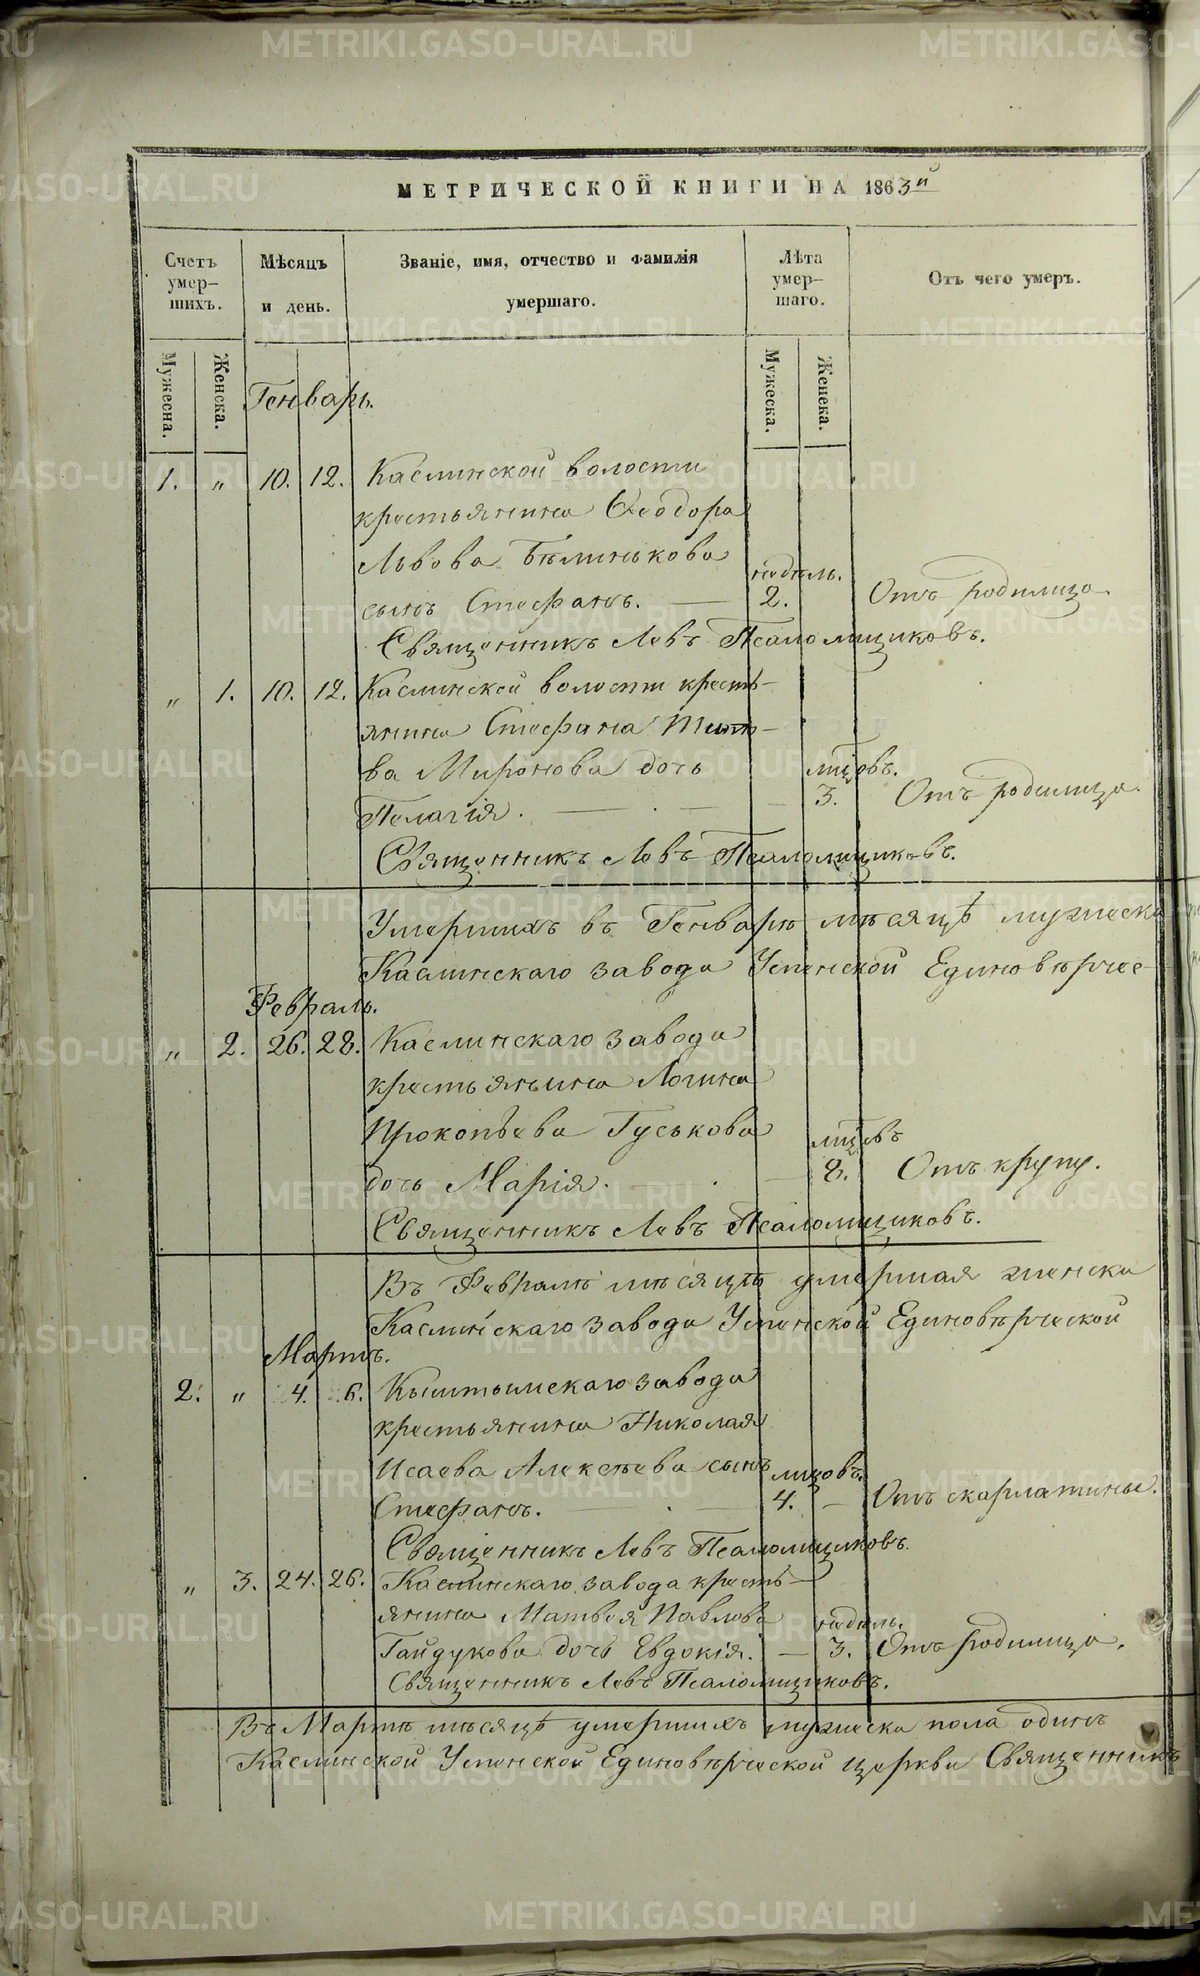 МЕТРИЧЕСКОЙ КНИГИ НА 1863й
Счетъ умер-шихъ.
Мѣсяцъ и день.
Званіе, имя, отчество и Фамилія умершаго.
Лѣта умер-шаго.
Отъ чего умеръ.
Мужеска.
Женска.
Мужеска.
Женска.
Генварь.
1. „ 10. 12. Каслинской волости
крестьянина Ѳеодора
Львова Бѣлинькова
недѣль.
сынъ Стефанъ. — 2. Отъ родимца.
Священникъ Левъ Псаломщиковъ.
„ 1. 10. 12. Каслинской волости кресть-
янина Стефана Тито-
ва Миронова дочь мѣсяцовъ.
Пелагія. — 3. Отъ родимца.
Священникъ Левъ Псаломщиковъ.
Умершихъ въ Генварѣ мѣсяцѣ мужеска
Каслинскаго завода Успенской Единовѣрчес-
Февраль.
„ 2. 26. 28. Каслинскаго завода
крестьянина Логина
Прокопьева Гуськова
мѣсяцевъ
дочь Марія. — 8. Отъ крупу.
Священникъ Левъ Псаломщиковъ.
Въ Февралѣ мѣсяцѣ умершая женска
Каслинскаго завода Успенской Единовѣрческой
Мартъ.
2. „ 4. 6. Кыштымскаго завода
крестьянина Николая
Исаева Алексѣева сынъ мѣсяцовъ
Стефанъ. — 4. — Отъ скарлатины.
Священникъ Левъ Псаломщиковъ.
„ 3. 24. 26. Каслинскаго завода кресть-
янина Матвея Павлова недѣль.
Гайдукова дочь Евдокія. — 3. Отъ родимца.
Священникъ Левъ Псаломщиковъ.
Въ Мартѣ мѣсяцѣ умершихъ мужеска пола одинъ
Каслинской Успенской Единовѣрческой церкви Священникъ
METRIKI.GASO-URAL.RU